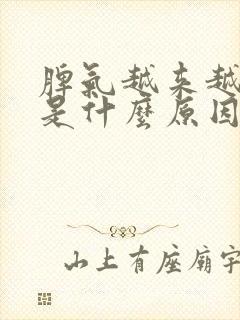 脾氣越来越
是什麽原因
山上有座廟宇